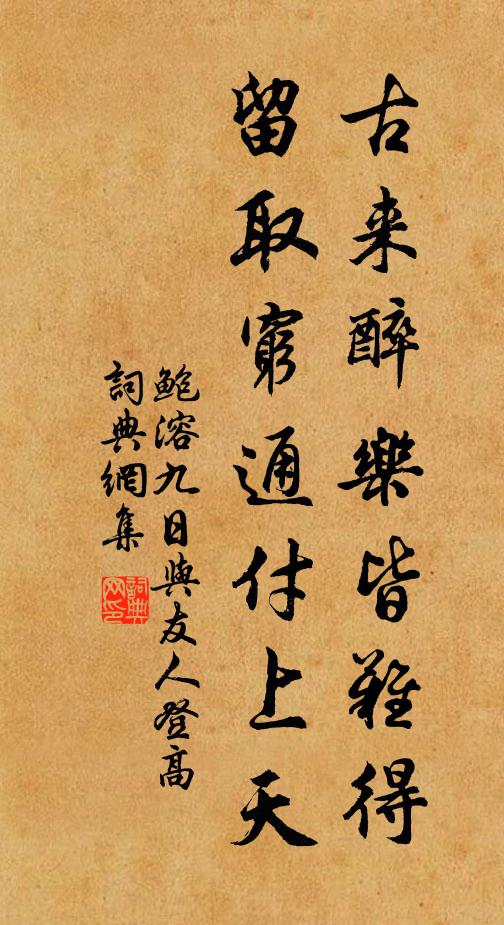 古来醉樂皆難得
留取窮通付上天
鲍溶九日與友人登高
詞典網集
詞典網印